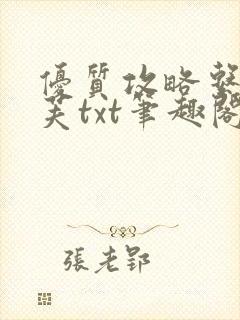 優質攻略整
芙txt筆趣閣
張老郢